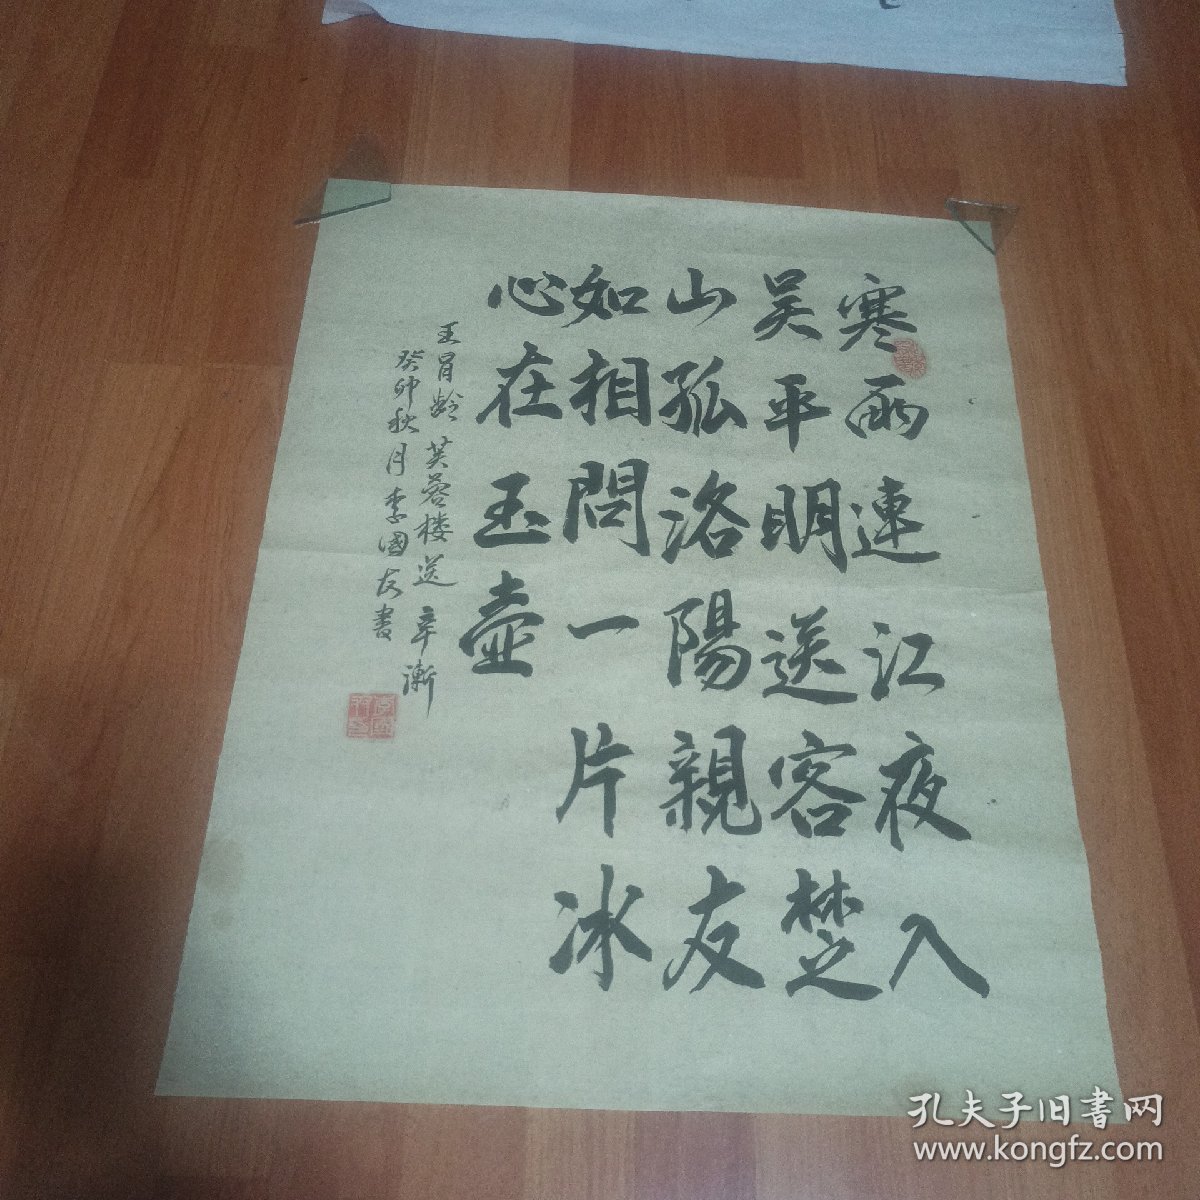 寒雨連江夜入
吴平明送客楚
山孤洛陽親友
如相問一片冰
心在玉壺
王昌龄芙蓉楼送辛漸
癸卯秋月李國友書
孔夫子旧書网
www.kongfz.com